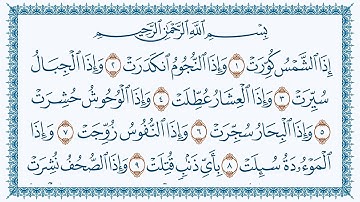 بِسْمِ ٱللَّهِ ٱلرَّحْمَٰنِ ٱلرَّحِيمِ
إِذَا ٱلشَّمْسُ كُوِّرَتْ ١ وَإِذَا ٱلنُّجُومُ ٱنكَدَرَتْ ٢ وَإِذَا ٱلْجِبَالُ
سُيِّرَتْ ٣ وَإِذَا ٱلْعِشَارُ عُطِّلَتْ ٤ وَإِذَا ٱلْوُحُوشُ حُشِرَتْ
٥ وَإِذَا ٱلْبِحَارُ سُجِّرَتْ ٦ وَإِذَا ٱلنُّفُوسُ زُوِّجَتْ ٧ وَإِذَا
ٱلْمَوْءُۥدَةُ سُئِلَتْ ٨ بِأَيِّ ذَنۢبٍ قُتِلَتْ ٩ وَإِذَا ٱلصُّحُفُ نُشِرَتْ